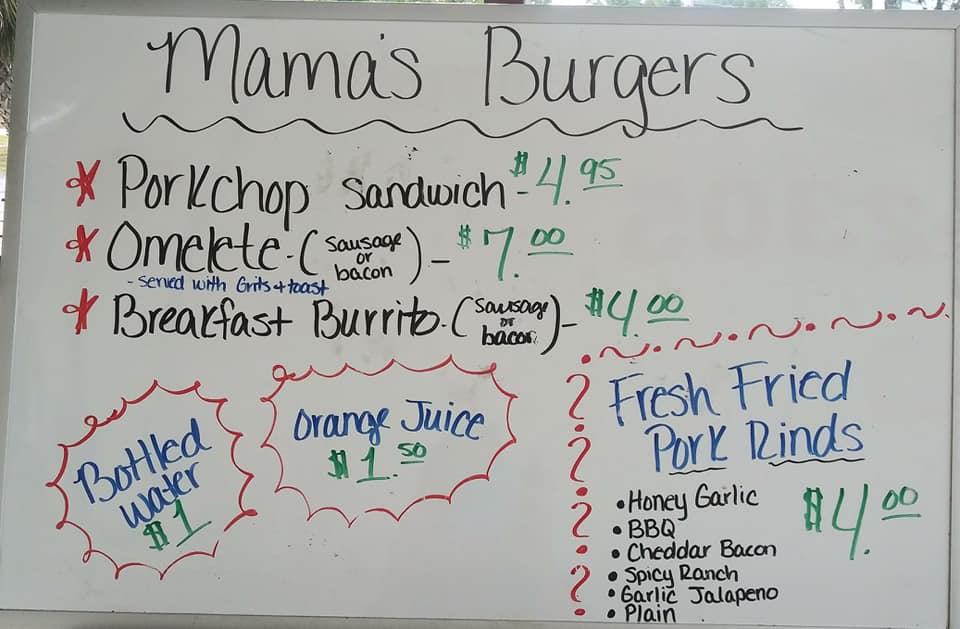 Mama's Burgers
* Porkchop Sandwich - $4.95
* Omelete - (sausage or bacon) - $7.00
- Served with Grits + toast
* Breakfast Burrito - (sausage or bacon) - $4.00
Bottled
water
$1
Orange Juice
$1.50
Fresh Fried
Pork Rinds
$4.00
• Honey Garlic
• BBQ
• Cheddar Bacon
• Spicy Ranch
• Garlic Jalapeno
• Plain